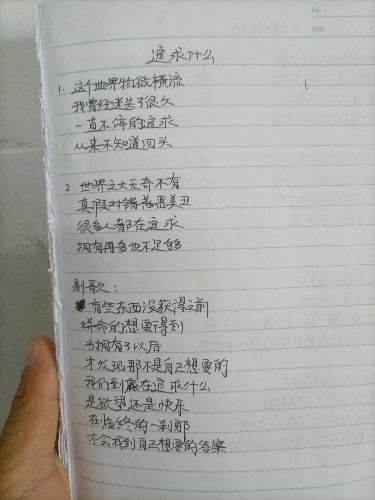 No.
Date
追求什么
1. 这个世界物欲横流
我曾经迷失了很久
一直不停的追求
从来不知道回头
2. 世界之大无奇不有
真假对错善恶美丑
很多人都在追求
拥有再多也不足够
副歌：
有些东西没获得之前
拼命的想要得到
当拥有了以后
才发现那不是自己想要的
我们到底在追求什么
是欲望还是快乐
在临终的一刹那
才会找到自己想要的答案